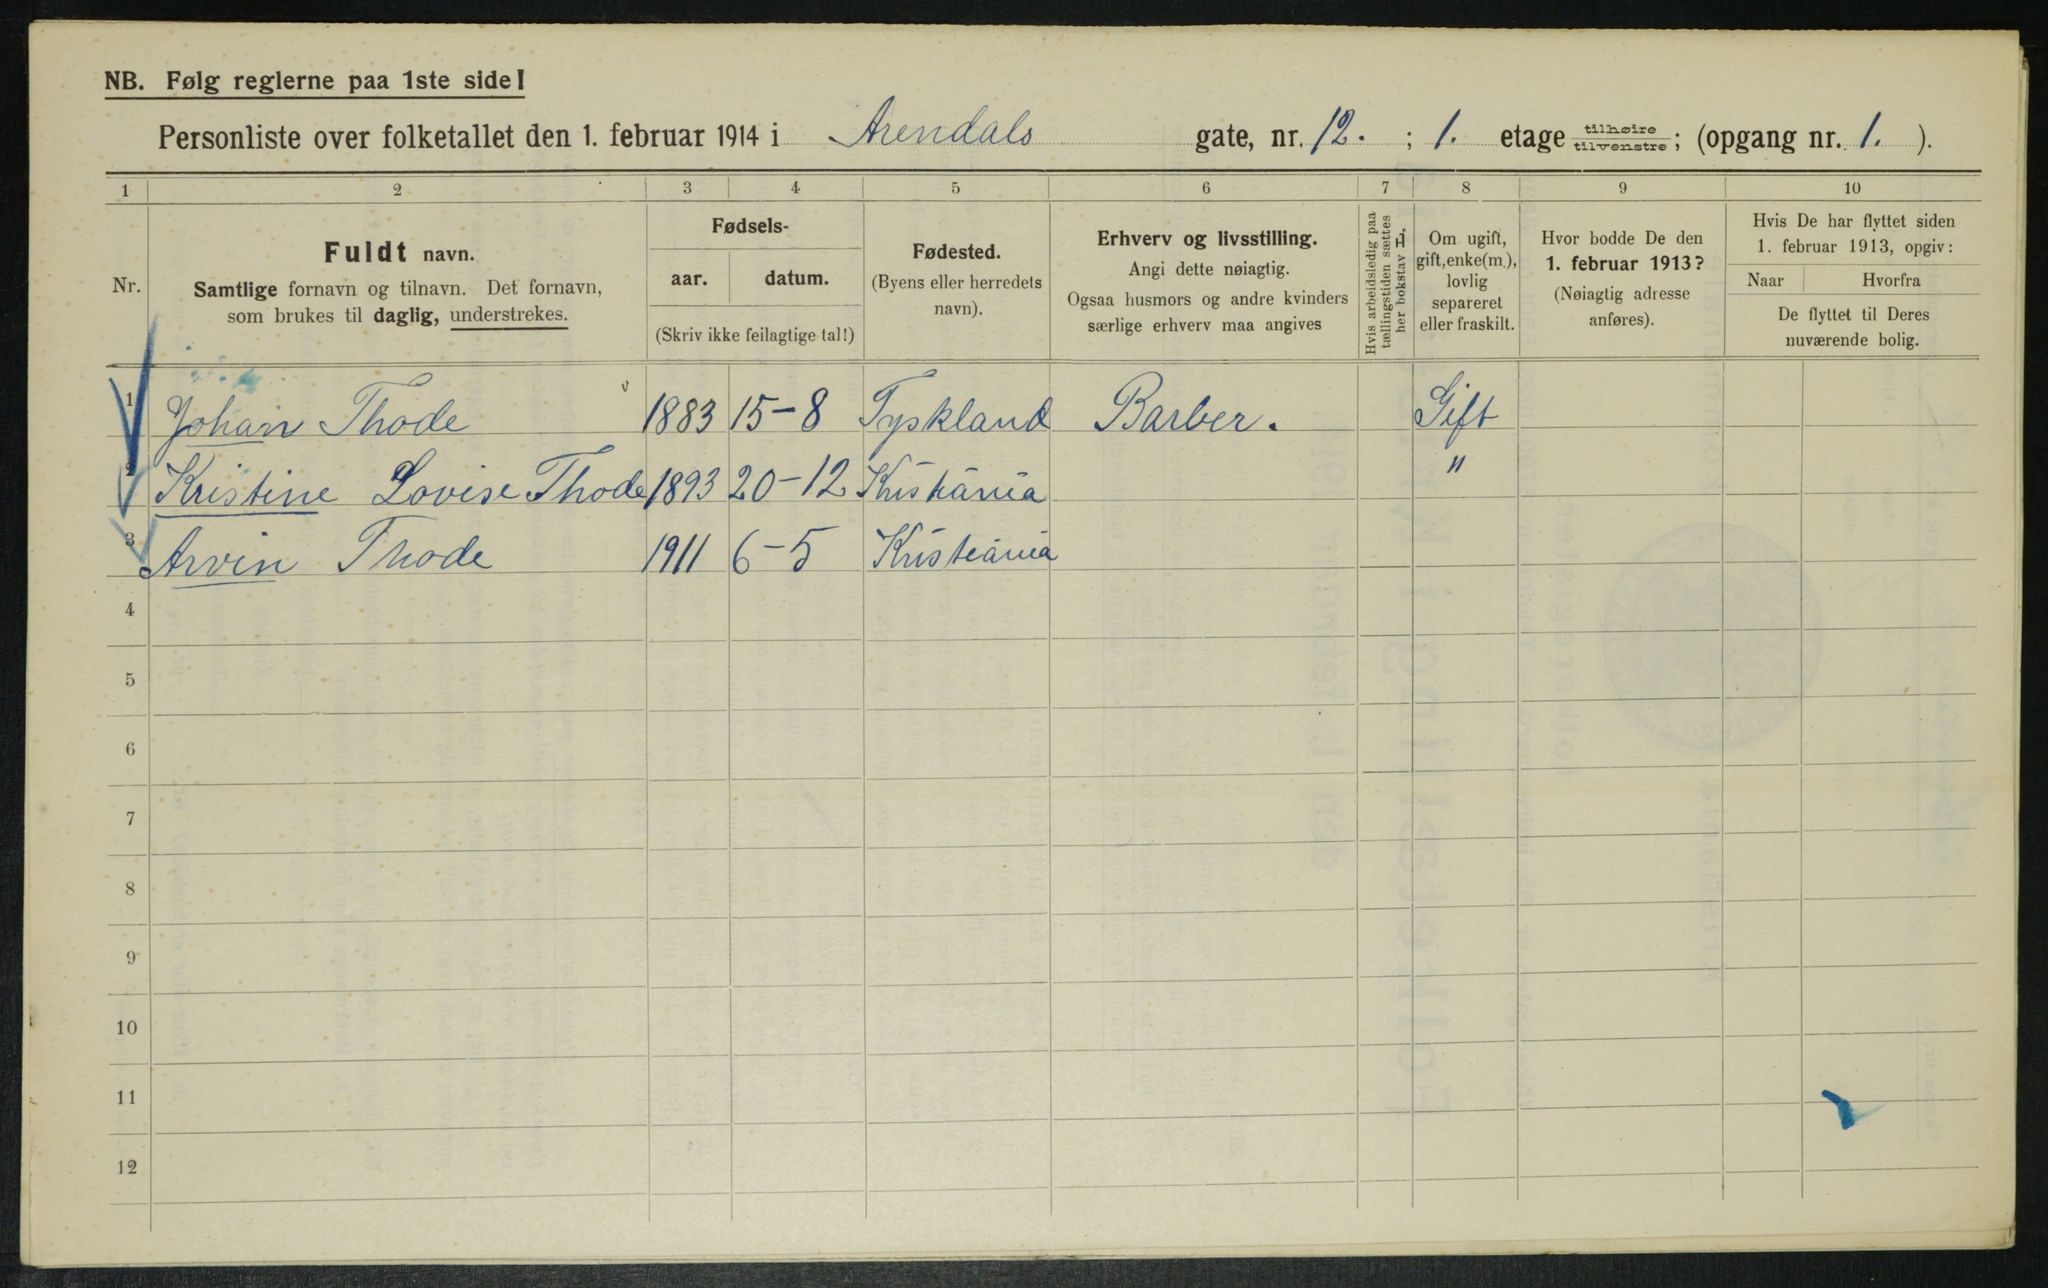 NB. Følg reglerne paa 1ste side!
Personliste over folketallet den 1. februar 1914 i Arendals gate, nr. 12. ; 1. etage tilhøire tilvenstre; (opgang nr. 1. ).
1 2 3 4 5 6 7 8 9 10
Nr.
Fuldt navn.
Samtlige fornavn og tilnavn. Det fornavn,
som brukes til daglig, understrekes.
Fødsels-
aar. datum.
(Skriv ikke feilagtige tal!)
Fødested.
(Byens eller herredets
navn).
Erhverv og livsstilling.
Angi dette nøiagtig.
Ogsaa husmors og andre kvinders
særlige erhverv maa angives
Hvis arbeidsledig paa
tællingstiden sættes
her bokstav L.
Om ugift,
gift, enke(m.),
lovlig
separeret
eller fraskilt.
Hvor bodde De den
1. februar 1913?
(Nøiagtig adresse
anføres).
Hvis De har flyttet siden
1. februar 1913, opgiv:
Naar Hvorfra
De flyttet til Deres
nuværende bolig.
1 Johan Thode 1883 15-8 Tyskland Barber. Gift
2 Kristine Lovise Thode 1893 20-12 Kristiania "
3 Arvin Thode 1911 6-5 Kristiania
4
5
6
7
8
9
10
11
12